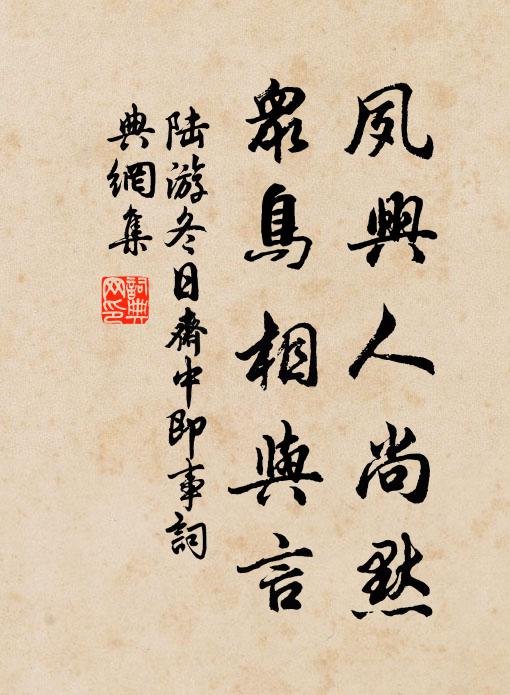 夙興人尚默
眾鳥相與言
陸游冬日齋中即事詞
典網集
詞典
网印